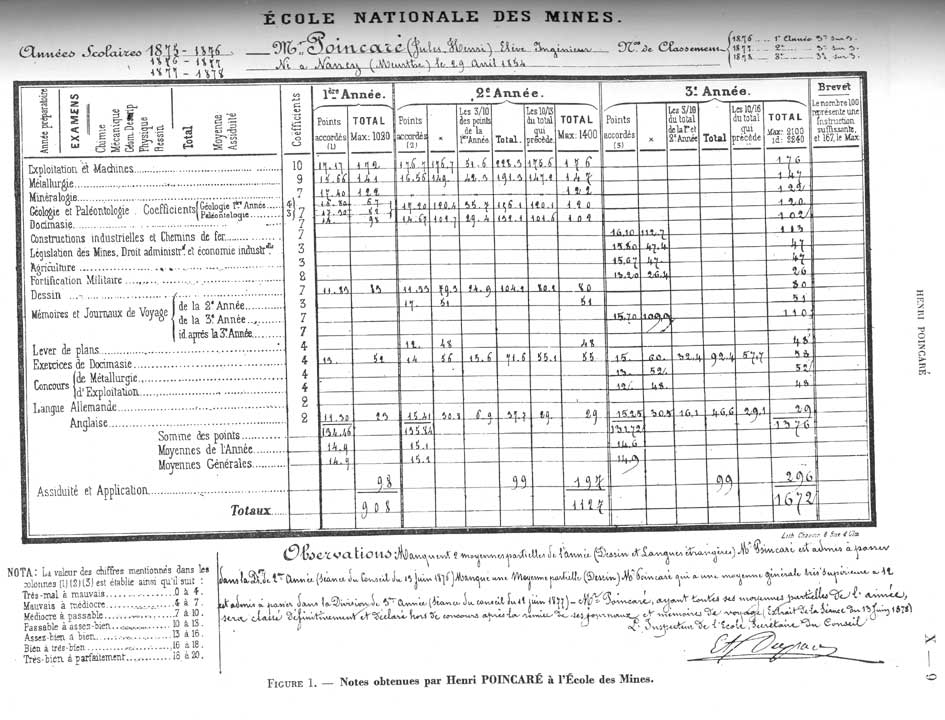 ÉCOLE NATIONALE DES MINES.
Années Scolaires 1875-1876 Mr Poincaré (Jules, Henri) Elève Ingénieur Nos de Classement 1876 1e Année 3e sur 3.
1876-1877 1877 2e 3e sur 3.
1877-1878 Né à Nancy (Meurthe) le 29 Avril 1854 1878 3e 3e sur 3.
Année préparatoire EXAMENS Chimie Mécanique Géom. Descrip Physique Dessin Total Moyenne Assiduité Coefficients
1ère Année. 2e Année. 3e Année. Brevet
Points accordés (1) TOTAL Max: 1020
Points accordés (2) × Les 3/10 des points de la 1ère Année Total. Les 10/13 du total qui précède. TOTAL Max: 1400
Points accordés (3) × Les 3/10 du total de la 1re et 2e Année Total Les 10/16 du total qui précède TOTAL Max: 2100 id: 2840
Le nombre 100 représente une Instruction suffisante, et 167, le Max
Exploitation et Machines 10 17.17 172 176.7 51.6 176
Métallurgie 9 15.66 141 16.56 149. 42.3 191.3 147.2 147 147
Minéralogie 7 17.40 122 122 122
Géologie et Paléontologie. Coefficients Géologie 1ère Année 4 67
Paléontologie 3 7 17.20 120.4 120.1 120 120
Docimasie 7 14. 98 14.67 102.7 29.4 132.1 101.6 102 102
Constructions industrielles et Chemins de fer 7 16.10 112.7 113
Législation des Mines, Droit administrif et économie industrlle 3 15.80 47.4 47
Agriculture 3 15.67 47. 47
Fortification Militaire 2 13.20 26.4 26
Dessin 7 11.83 83 11.33 79.3 24.9 104.2 80.2 80 80
Mémoires et Journaux de Voyage de la 2e Année 3 17. 51 51 51
de la 3e Année 7 15.70 109.9 110
id après la 3e Année 7
Lever de plans 4 12. 48 48 48
Exercices de Docimasie 4 13. 52 14 56 15.6 71.6 55.1 55 15. 60. 32.4 92.4 57.7 58
Concours de Métallurgie 4 13. 52. 52
d'Exploitation 4 12. 48. 48
Langue Allemande 2
Anglaise 2 11.30 23 15.41 30.8 6.9 37.7 29. 29 15.25 30.5 16.1 46.6 29.1 29
Somme des points 134.46 135.84 131.72 1376
Moyennes de l'Année 14.9 15.1 14.6
Moyennes Générales 14.9 15.1 14.9
Assiduité et Application 98 99 197 99 296
Totaux 908 1127 1672
Observations: Manquent 2 moyennes partielles de l'année (Dessin et Langues étrangères) Mr Poincaré est admis à passer
dans la Don de 2e Année (Séance du Conseil du 13 Juin 1876) Manque une Moyenne partielle (Dessin) Mr Poincaré qui a une moyenne générale très supérieure à 12
est admis à passer dans la Division de 3e Année (Séance du conseil du 12 juin 1877) - Mr Poincaré, ayant toutes ses moyennes partielles de l'année,
sera classé définitivement et déclaré hors de concours après la remise de ses journaux et mémoires de voyage (Extrait de la Séance du 13 Juin 1878)
L'Inspecteur de l'Ecole, Secrétaire du Conseil
NOTA: La valeur des chiffres mentionnés dans les
colonnes (1) (2) (3) est établie ainsi qu'il suit :
Très-mal à mauvais 0 à 4.
Mauvais à médiocre 4 à 7.
Médiocre à passable 7 à 10.
Passable à assez-bien 10 à 13.
Assez-bien à bien 13 à 16.
Bien à très-bien 16 à 18.
Très-bien à parfaitement 18 à 20.
FIGURE 1. — Notes obtenues par Henri POINCARÉ à l'École des Mines.
HENRI POINCARÉ
X — 9